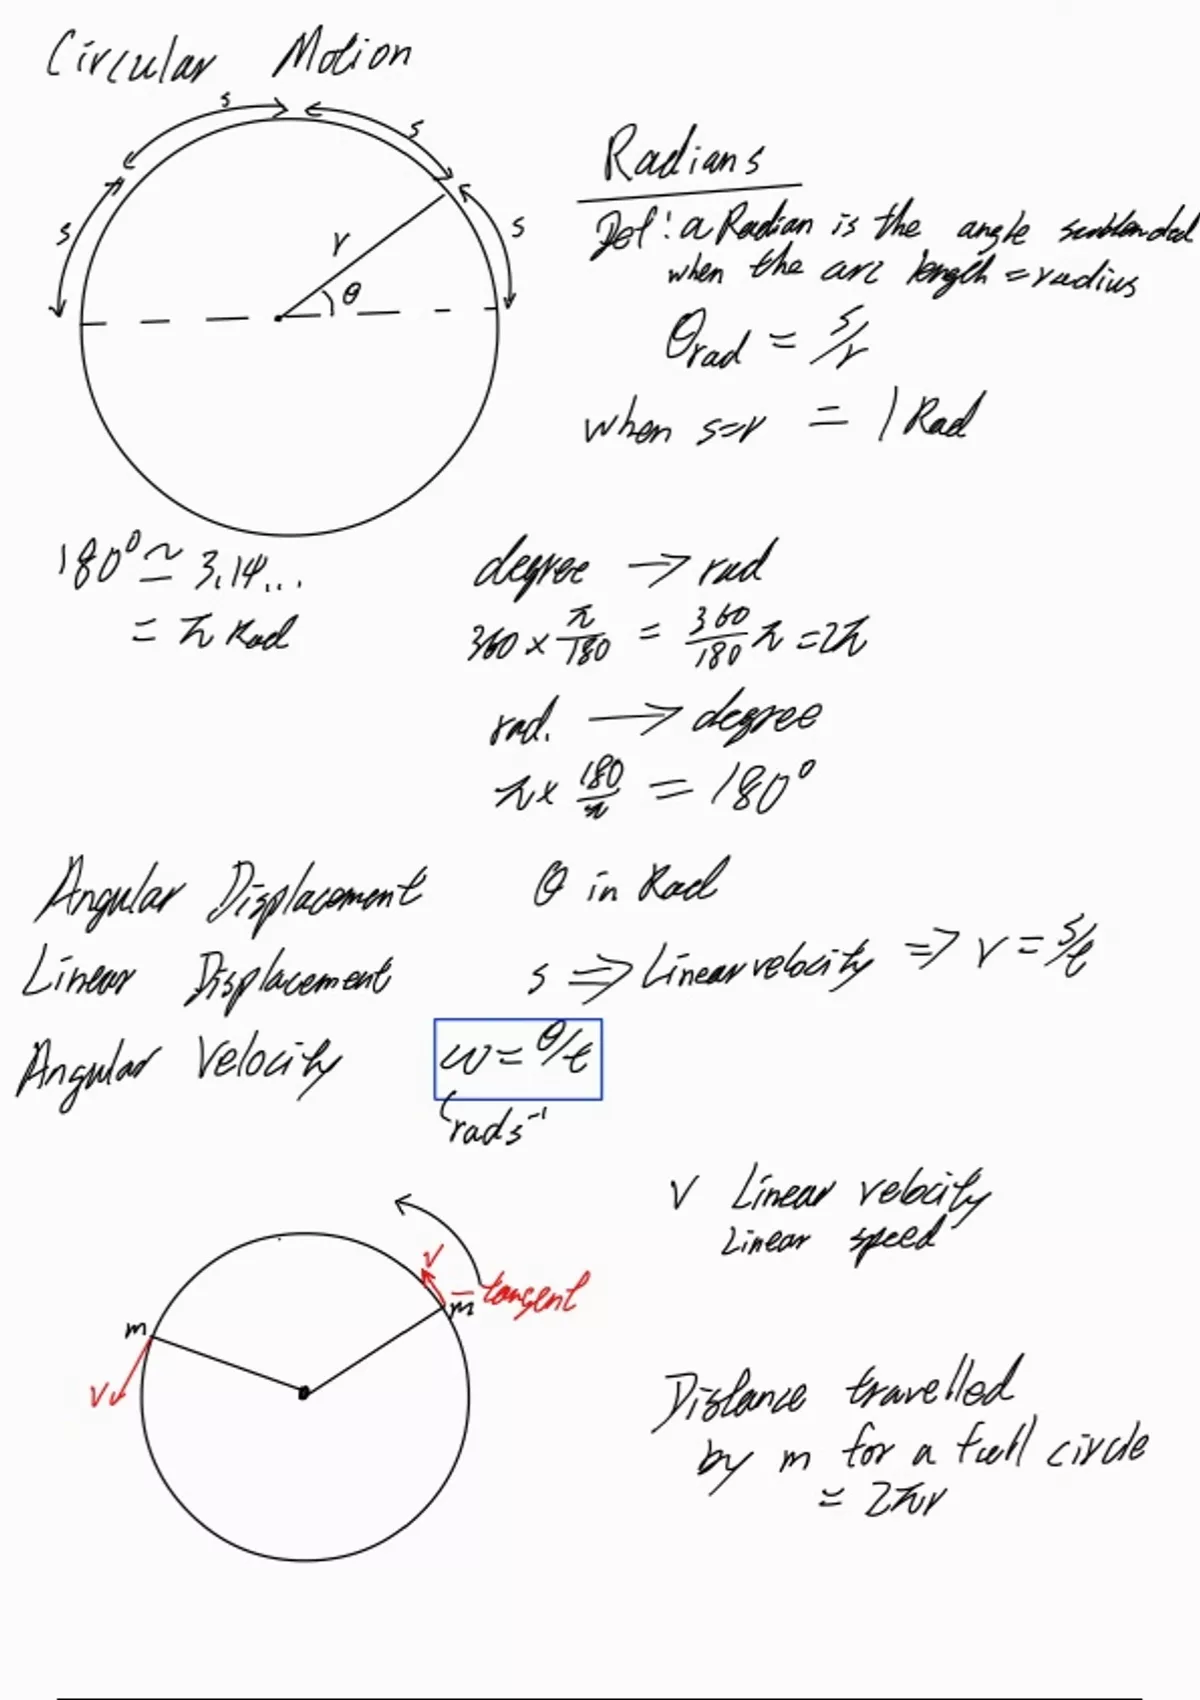 Circular Motion
s
s
s
s
r
θ
Radians
Def: a Radian is the angle subtended
when the arc length = radius
θrad = s/r
when s=r = 1 Rad
180° ≃ 3.14...
= π Rad
degree → rad
360 × π/180 = 360/180 π = 2π
rad. → degree
π × 180/π = 180°
Angular Displacement θ in Rad
Linear Displacement s ⇒ Linear velocity ⇒ v = s/t
Angular Velocity ω = θ/t
rads⁻¹
v Linear velocity
Linear speed
v
m - tangent
m
v
Distance travelled
by m for a full circle
= 2πr